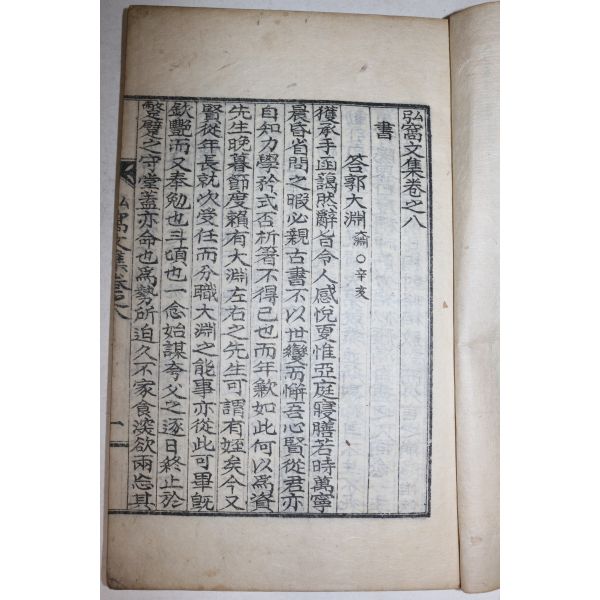 弘窩文集卷之八
書
答郭大淵 奫○辛亥
獲承手函藹然辭旨令人感悅夏惟亞庭寢膳若時萬寧
晨昏省問之暇必親古書不以世變而懈吾心賢從君亦
自知力學矜式否析箸不得已也而年歉如此何以爲資
先生晚暮節度賴有大淵左右之先生可謂有姪矣今又
賢從年長就次受任而分職大淵之能事亦從此可畢旣
欽艷而又奉勉也斗頃也一念始謀夸父之逐日終止於
蹩躄之守堂蓋亦命也爲勢所迫久不家食深欲兩忘其
弘窩文集卷之八
一